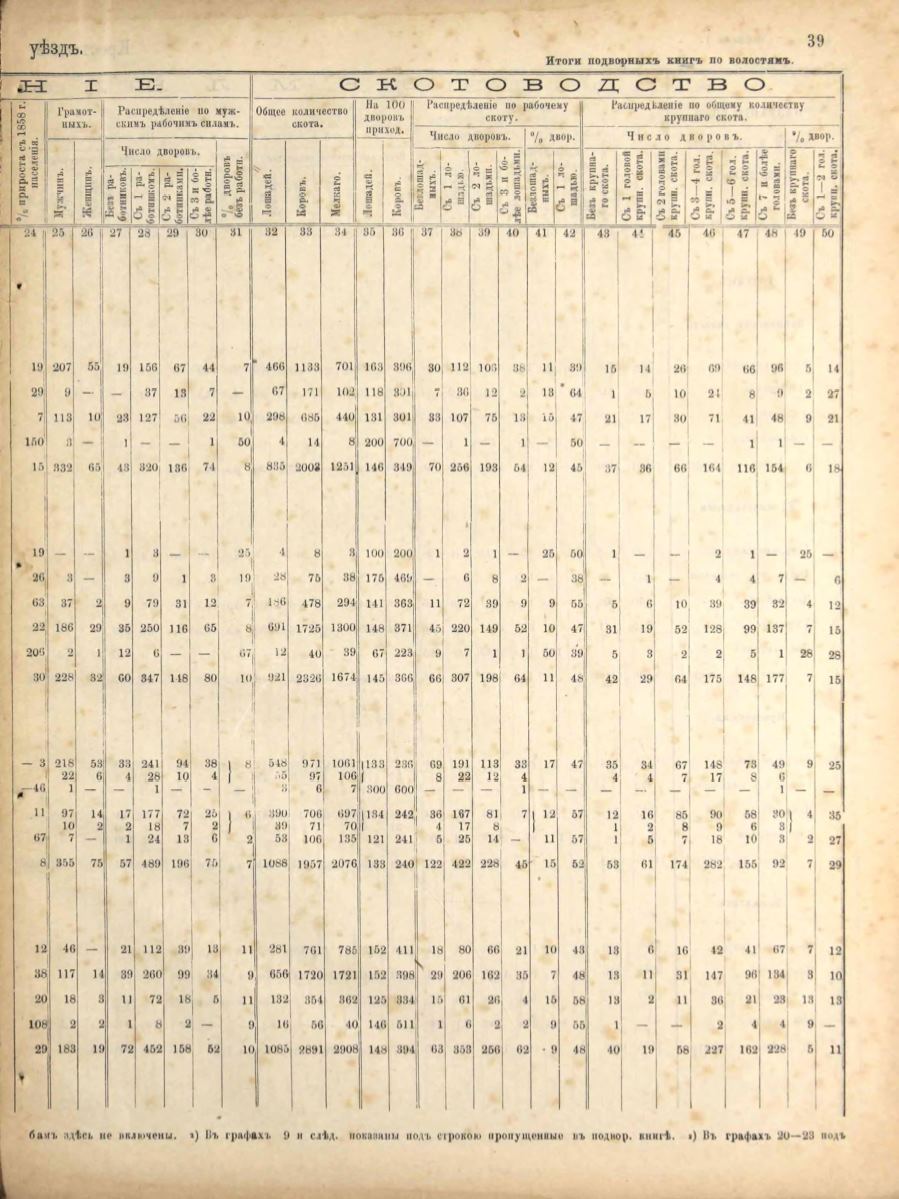 уѣздъ.
39
Итоги подворныхъ книгъ по волостямъ.
Н І Е.
С К О Т О В О Д С Т В О
% прироста съ 1858 г. населенія.
Грамотныхъ.
Распредѣленіе по мужскимъ рабочимъ силамъ.
Общее количество скота.
На 100 дворовъ приход.
Распредѣленіе по рабочему скоту.
Распредѣленіе по общему количеству крупнаго скота.
Число дворовъ.
% дворовъ безъ работн.
Число дворовъ.
% двор.
Число дворовъ.
% двор.
Мужчинъ.
Женщинъ.
Безъ работниковъ.
Съ 1 работникомъ.
Съ 2 работниками.
Съ 3 и болѣе работн.
Лошадей.
Коровъ.
Мелкаго.
Лошадей.
Коровъ.
Безлошадныхъ.
Съ 1 лошадью.
Съ 2 лошадьми.
Съ 3 и болѣе лошадьми.
Безлошадныхъ.
Съ 1 лошадью.
Безъ крупнаго скота.
Съ 1 головой крупн. скота.
Съ 2 головами крупн. скота.
Съ 3—4 гол. крупн. скота.
Съ 5—6 гол. крупн. скота.
Съ 7 и болѣе головами.
Безъ крупнаго скота.
Съ 1—2 гол. крупн. скота.
24 25 26 27 28 29 30 31 32 33 34 35 36 37 38 39 40 41 42 43 44 45 46 47 48 49 50
19 207 55 19 156 67 44 7 466 1133 701 163 396 30 112 106 38 11 39 15 14 26 69 66 96 5 14
29 9 — — 37 13 7 — 67 171 102 118 301 7 36 12 2 13 64 1 5 10 24 8 9 2 27
7 113 10 23 127 56 22 10 298 685 440 131 301 33 107 75 13 15 47 21 17 30 71 41 48 9 21
150 3 — 1 — — 1 50 4 14 8 200 700 — 1 — 1 — 50 — — — — 1 1 — —
15 332 65 43 320 136 74 8 835 2003 1251 146 349 70 256 193 54 12 45 37 36 66 164 116 154 6 18
19 — — 1 3 — — 25 4 8 3 100 200 1 2 1 — 25 50 1 — — 2 1 — 25 —
26 3 — 3 9 1 3 19 28 75 38 175 469 — 6 8 2 — 38 — 1 — 4 4 7 — 6
63 37 2 9 79 31 12 7 186 478 294 141 363 11 72 39 9 9 55 5 6 10 39 39 32 4 12
22 186 29 35 250 116 65 8 691 1725 1300 148 371 45 220 149 52 10 47 31 19 52 128 99 137 7 15
206 2 1 12 6 — — 67 12 40 39 67 223 9 7 1 1 50 39 5 3 2 2 5 1 28 28
30 228 32 60 347 148 80 10 921 2326 1674 145 366 66 307 198 64 11 48 42 29 64 175 148 177 7 15
— 3 218 53 33 241 94 38 } 8 548 971 1061 } 133 236 69 191 113 33 17 47 35 34 67 148 73 49 9 25
22 6 4 28 10 4 55 97 106 8 22 12 4 4 4 7 17 8 6
—46 1 — — 1 — — — 3 6 7 300 600 — — — 1 — — — — — — — 1 — —
11 97 14 17 177 72 25 } 6 390 706 697 } 134 242 36 167 81 7 } 12 57 12 16 85 90 58 30 } 4 35
10 2 2 18 7 2 39 71 70 4 17 8 1 2 8 9 6 3
67 7 — 1 24 13 6 2 53 106 135 121 241 5 25 14 — 11 57 1 5 7 18 10 3 2 27
8 355 75 57 489 196 75 7 1088 1957 2076 133 240 122 422 228 45 15 52 53 61 174 282 155 92 7 29
12 46 — 21 112 39 13 11 281 761 785 152 411 18 80 66 21 10 43 13 6 16 42 41 67 7 12
38 117 14 39 260 99 34 9 656 1720 1721 152 398 29 206 162 35 7 48 13 11 31 147 96 134 3 10
20 18 3 11 72 18 5 11 132 354 362 125 334 15 61 26 4 15 58 13 2 11 36 21 23 13 13
108 2 2 1 8 2 — 9 16 56 40 146 511 1 6 2 2 9 55 1 — — 2 4 4 9 —
29 183 19 72 452 158 52 10 1085 2891 2908 148 394 63 353 256 62 9 48 40 19 58 227 162 228 5 11
бамъ здѣсь не включены. ²) Въ графахъ 9 и слѣд. показаны подъ строкою пропущенные въ подвор. книгѣ. ³) Въ графахъ 20—23 подъ